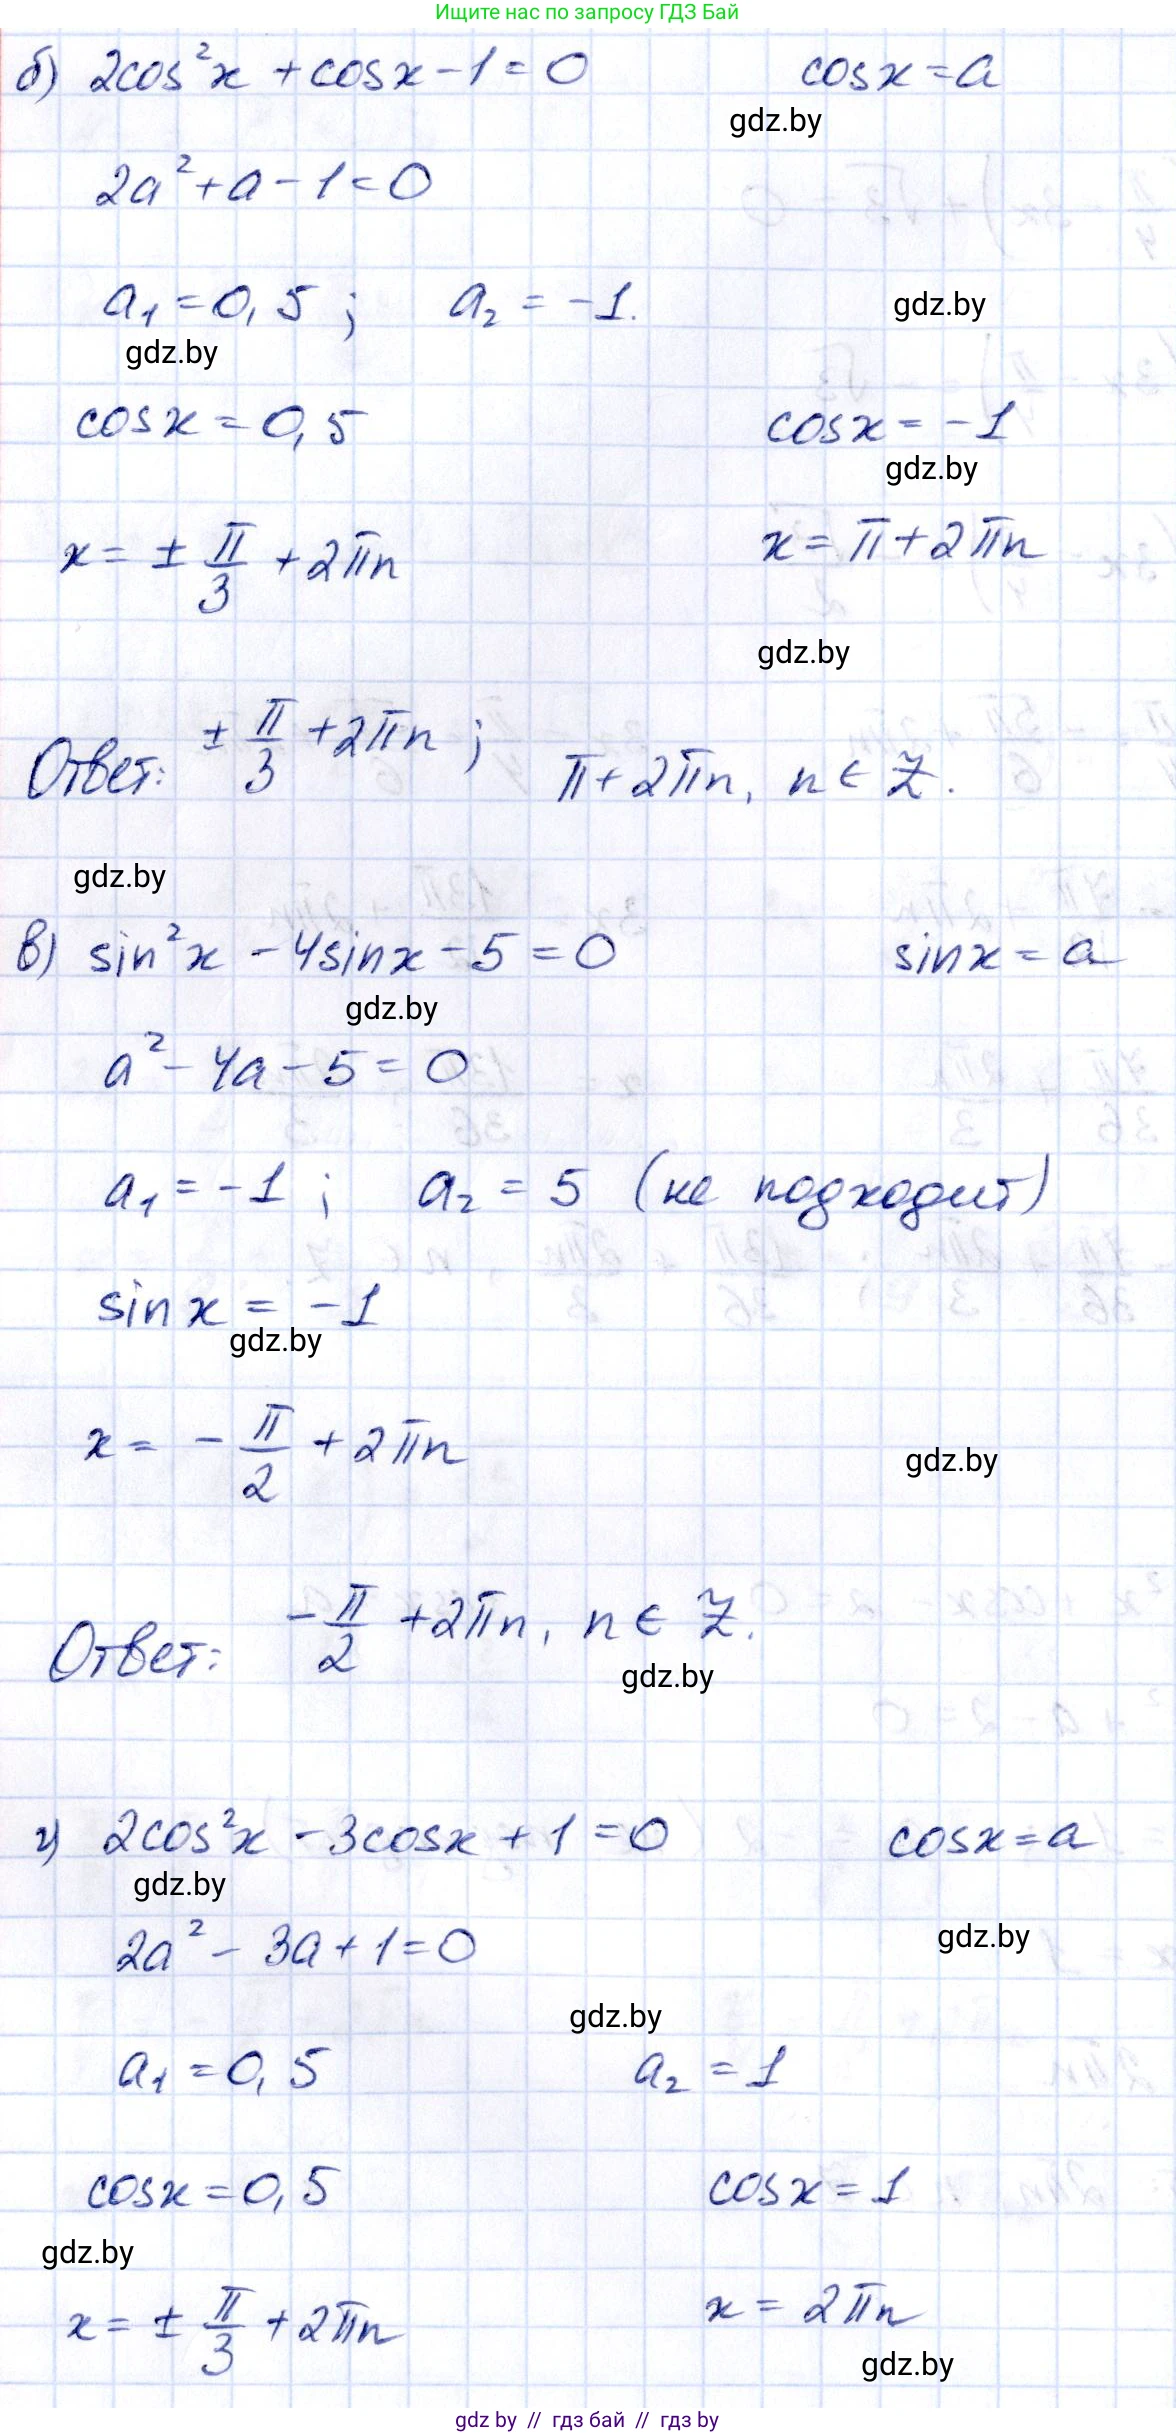 Ищите нас по запросу ГДЗ Бай
б) 2cos²x + cosx - 1 = 0    cosx = a
gdz.by
2a² + a - 1 = 0
a₁ = 0,5 ;    a₂ = -1.
gdz.by
gdz.by
cosx = 0,5    cosx = -1
gdz.by
x = ± π/3 + 2πn    x = π + 2πn
gdz.by
Ответ: ± π/3 + 2πn ; π + 2πn, n ∈ Z.
gdz.by
в) sin²x - 4sinx - 5 = 0    sinx = a
gdz.by
a² - 4a - 5 = 0
a₁ = -1 ;    a₂ = 5 (не подходит)
sinx = -1
gdz.by
x = - π/2 + 2πn
gdz.by
Ответ: - π/2 + 2πn, n ∈ Z.
gdz.by
г) 2cos²x - 3cosx + 1 = 0    cosx = a
gdz.by
2a² - 3a + 1 = 0
gdz.by
gdz.by
a₁ = 0,5    a₂ = 1
cosx = 0,5    cosx = 1
gdz.by
x = ± π/3 + 2πn    x = 2πn
gdz.by
gdz by // гдз бай // гдз by